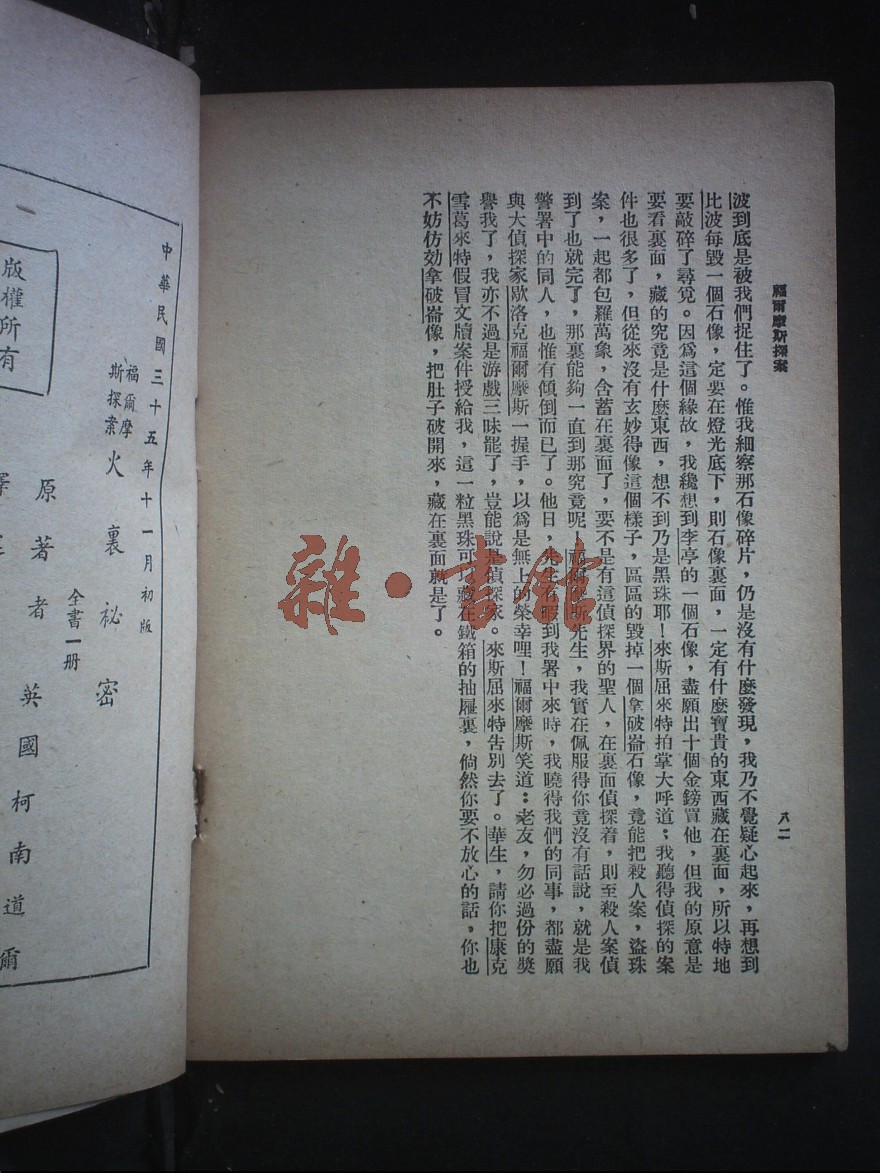 福爾摩斯探案
八二
波到底是被我們捉住了。惟我細察那石像碎片，仍是沒有什麼發現，我乃不覺疑心起來，再想到
比波每毀一個石像，定要在燈光底下，則石像裏面，一定有什麼寶貴的東西藏在裏面，所以特地
要敲碎了尋覓。因爲這個緣故，我纔想到李亭的一個石像，盡願出十個金鎊買他，但我的原意是
要看裏面，藏的究竟是什麼東西，想不到乃是黑珠耶！來斯屈來特拍掌大呼道：我聽得偵探的案
件也很多了，但從來沒有玄妙得像這個樣子，區區的毀掉一個拿破崙石像，竟能把殺人案，盜珠
案，一起都包羅萬象，含蓄在裏面了，要不是有這偵探界的聖人，在裏面偵探着，則至殺人案偵
到了也就完了，那裏能夠一直到那究竟呢！福爾摩斯先生，我實在佩服得你竟沒有話說，就是我
警署中的同人，也惟有傾倒而已了。他日，先生有暇到我署中來時，我曉得我們的同事，都盡願
與大偵探家歇洛克福爾摩斯一握手，以爲是無上的榮幸哩！福爾摩斯笑道：老友，勿必過份的獎
譽我了，我亦不過是游戲三昧罷了，豈能說是偵探家。來斯屈來特告別去了。華生，請你把康克
雪葛來特假冒文牘案件授給我，這一粒黑珠可以藏在鐵箱的抽屜裏，倘然你要不放心的話，你也
不妨仿効拿破崙像，把肚子破開來，藏在裏面就是了。
雜·書館
中華民國三十五年十一月初版
福爾摩斯探案 火裏祕密
全書一册
原著者 英國柯南道爾
版權所有